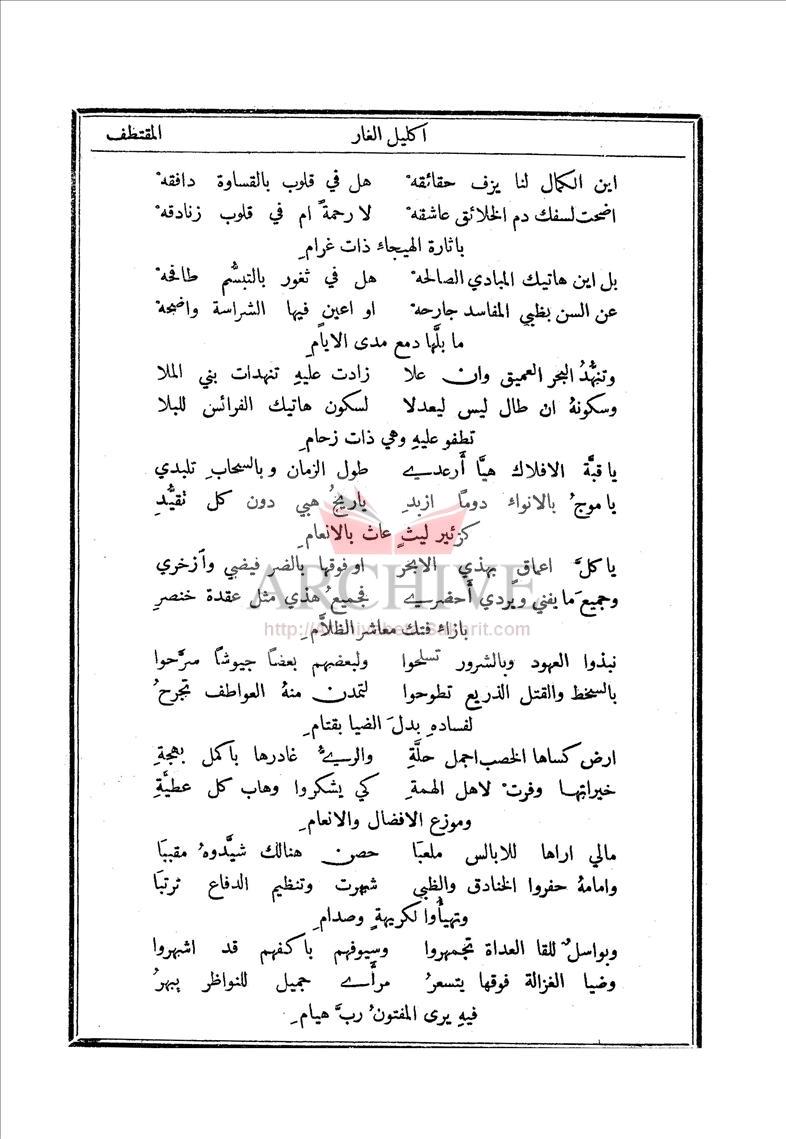 المقتطف اكليل الغار
اين الكمال لنا يزف حقائقه هل في قلوب بالقساوة دافقه
اضحت لسفك دم الخلائق عاشقه لا رحمةً ام في قلوب زنادقه
باثارة الهيجاء ذات غرامِ
بل اين هاتيك المبادي الصالحه هل في ثغور بالتبسُّم طافحه
عن السن بظبي المفاسد جارحه او اعين فيها الشراسة واضحه
ما بلَّها دمع مدى الايامِ
وتنهُّدُ البحر العميق وان علا زادت عليهِ تنهدات بني الملا
وسكونهُ ان طال ليس ليعدلا لسكون هاتيك الفرائس للبلا
تطفو عليهِ وهي ذات زحامِ
يا قبَّة الافلاك هيَّا أَرعدي طول الزمان وبالسحابِ تلبدي
يا موجُ بالانواء دومًا ازبدِ ياريحُ هبي دون كل تقيُّدِ
كزئير ليثٍ عاث بالانعامِ
يا كلَّ اعماق بهذي الابحر او فوقها بالضر فيضي وآزخري
وجميعَ ما يفني ويُردي أَحضري فجميعُ هذي مثل عقدة خنصرِ
بازاء فتك معاشر الظلَّامِ
http://Archivebeta.Sakhrit.com
ARCHIVE
نبذوا العهود وبالشرور تسلحوا ولبعضهم بعضًا جيوشًا سرَّحوا
بالسخط والقتل الذريع تطوحوا لتمدن منهُ العواطف تجرحُ
لفسادهِ بدلَ الضيا بقتامِ
ارض كساها الخصب اجمل حلَّةِ والورى غادرها باكمل بهجةِ
خيراتها وفرت لاهل الهمةِ كي يشكروا وهاب كل عطيَّةِ
وموزع الافضال والانعامِ
مالي اراها للابالس ملعبَا حصن هنالك شيَّدوهُ مقببَا
وامامهُ حفروا الخنادق والظبي شهرت وتنظيم الدفاع ترتبَا
وتهيأُوا لكريهةٍ وصدامِ
وبواسلٌ للقا العداة تجمهروا وسيوفهم باكفهم قد اشهروا
وضيا الغزالة فوقها يتسعرُ مرأَى جميل للنواظر يبهرُ
فيهِ يرى المفتونُ ربَّ هيامِ